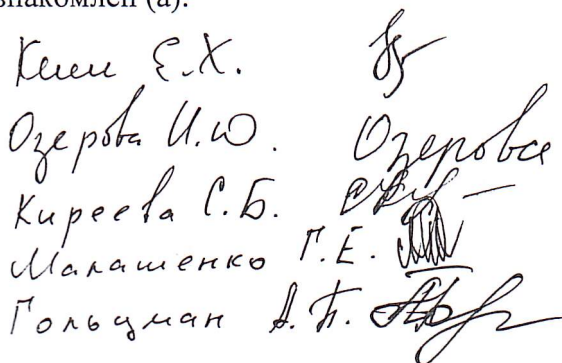 знакомлен (а).
Ким Е.Х.
Озерова И.Ю. Озерова
Киреева С.Б.
Малашенко Г.Е.
Гольцман А.П.